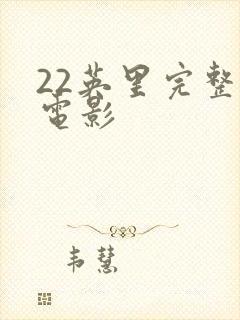 22英里完整
电影
韦慧